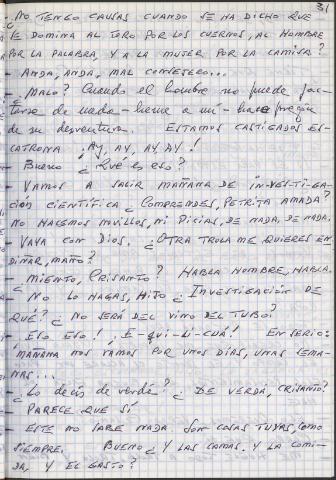 31
¿NO TENGO CAUSAS CUANDO SE HA DICHO QUE
SE DOMINA AL TORO POR LOS CUERNOS, AL HOMBRE
POR LA PALABRA, Y A LA MUJER POR LA CAMISA?
- ANDA, ANDA, MAL CONSEJERO...
- ¿MALO? Cuando el hombre no puede
de nada - heme a mí - hace pregón
de su desventura. ESTAMOS CASTIGADOS ES-
CATRONA ¡AY, AY, AY, AY!
- BUENO ¿QUÉ ES ESO?
- VAMOS A SALIR MAÑANA DE INVESTIGA-
CIÓN CIENTÍFICA ¿COMPRENDES, PETRITA AMADA?
NO HACEMOS NOVILLOS, NI PICIAS, DE NADA, DE NADA.
- VAYA CON DIOS. ¿OTRA TROLA ME QUIERES EN-
DIÑAR, MAÑO?
- ¿MIENTO, CRISANTO? HABLA HOMBRE, HABLA.
- NO LO HAGAS, HIJO ¿INVESTIGACIÓN DE
QUÉ? ¿NO SERÁ DEL VINO DEL TUBO?
- ¡ESO, ESO! ¡E-QUI-LI-CUÁ! EN SERIO:
MAÑANA NOS VAMOS POR UNOS DÍAS, UNAS SEMA-
NAS...
- ¿Lo decís de verdá? ¿DE VERDÁ, CRISANTO?
- PARECE QUE SÍ
- ESTE NO SABE NADA. SON COSAS TUYAS, COMO
SIEMPRE. BUENO ¿Y LAS CAMAS, Y LA COMI-
DA, Y EL GASTO?